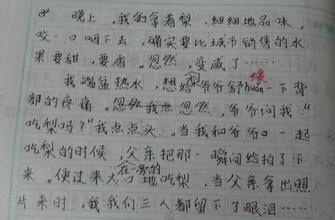 晚上，我们拿着梨，细细地品味，
咬一口咽下去，确实要比城市销售的水
果要甜，要香。忽然，变咸了……
我端盆热水，想给爷爷舒huǎn一下背
缓
部的疼痛。忽然我点忽然，爷爷问我：“
吃梨吗？”我点点头。当我和爷爷一起
吃梨的时候，父亲把那一瞬间给拍了下
在一旁的
来。便过来大口地吃梨，当父亲拿出照
片来时，我我们三人都留下了眼泪……